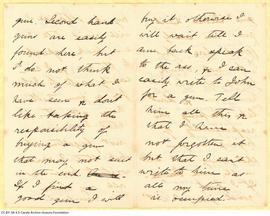 gun. Second hand
guns are easily
found here, but
I do not think
much of what I
have seen & don't
like taking the
responsibility of
buying a gun
that may not suit
in the end
If I find a
good gun I will
buy it otherwise I
will wait till I
am back, speak
to the ass, & I can
easily write to John
for a gun. Tell
him all this &
that I have
not forgotten it
but that I can't
write to him as
all my time
is occupied.